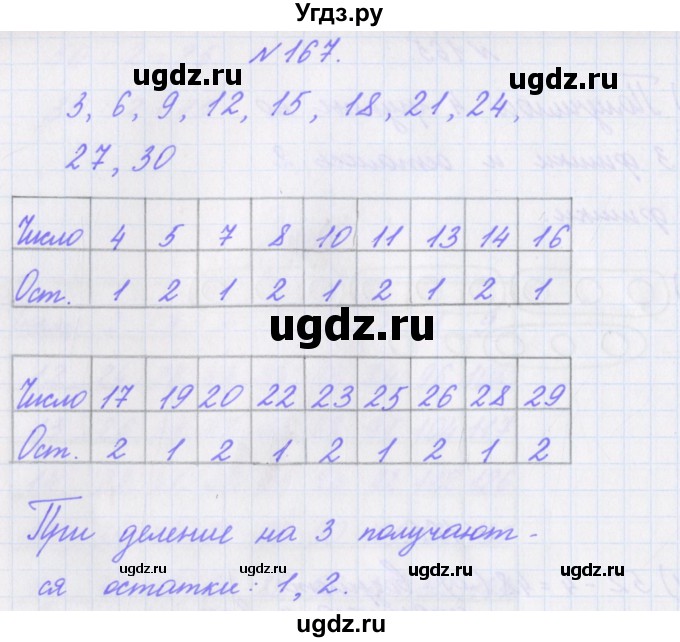 Угдз.ру
№ 167.
ugdz.ru ugdz.ru
3, 6, 9, 12, 15, 18, 21, 24,
27, 30
ugdz.ru
Число 4 5 7 8 10 11 13 14 16
Ост. 1 2 1 2 1 2 1 2 1
ugdz.ru
Число 17 19 20 22 23 25 26 28 29
Ост. 2 1 2 1 2 1 2 1 2
При деление на 3 получают-
ся остатки: 1, 2.
ugdz.ru ugdz.ru ugdz.ru ugdz.ru
ugdz.ru